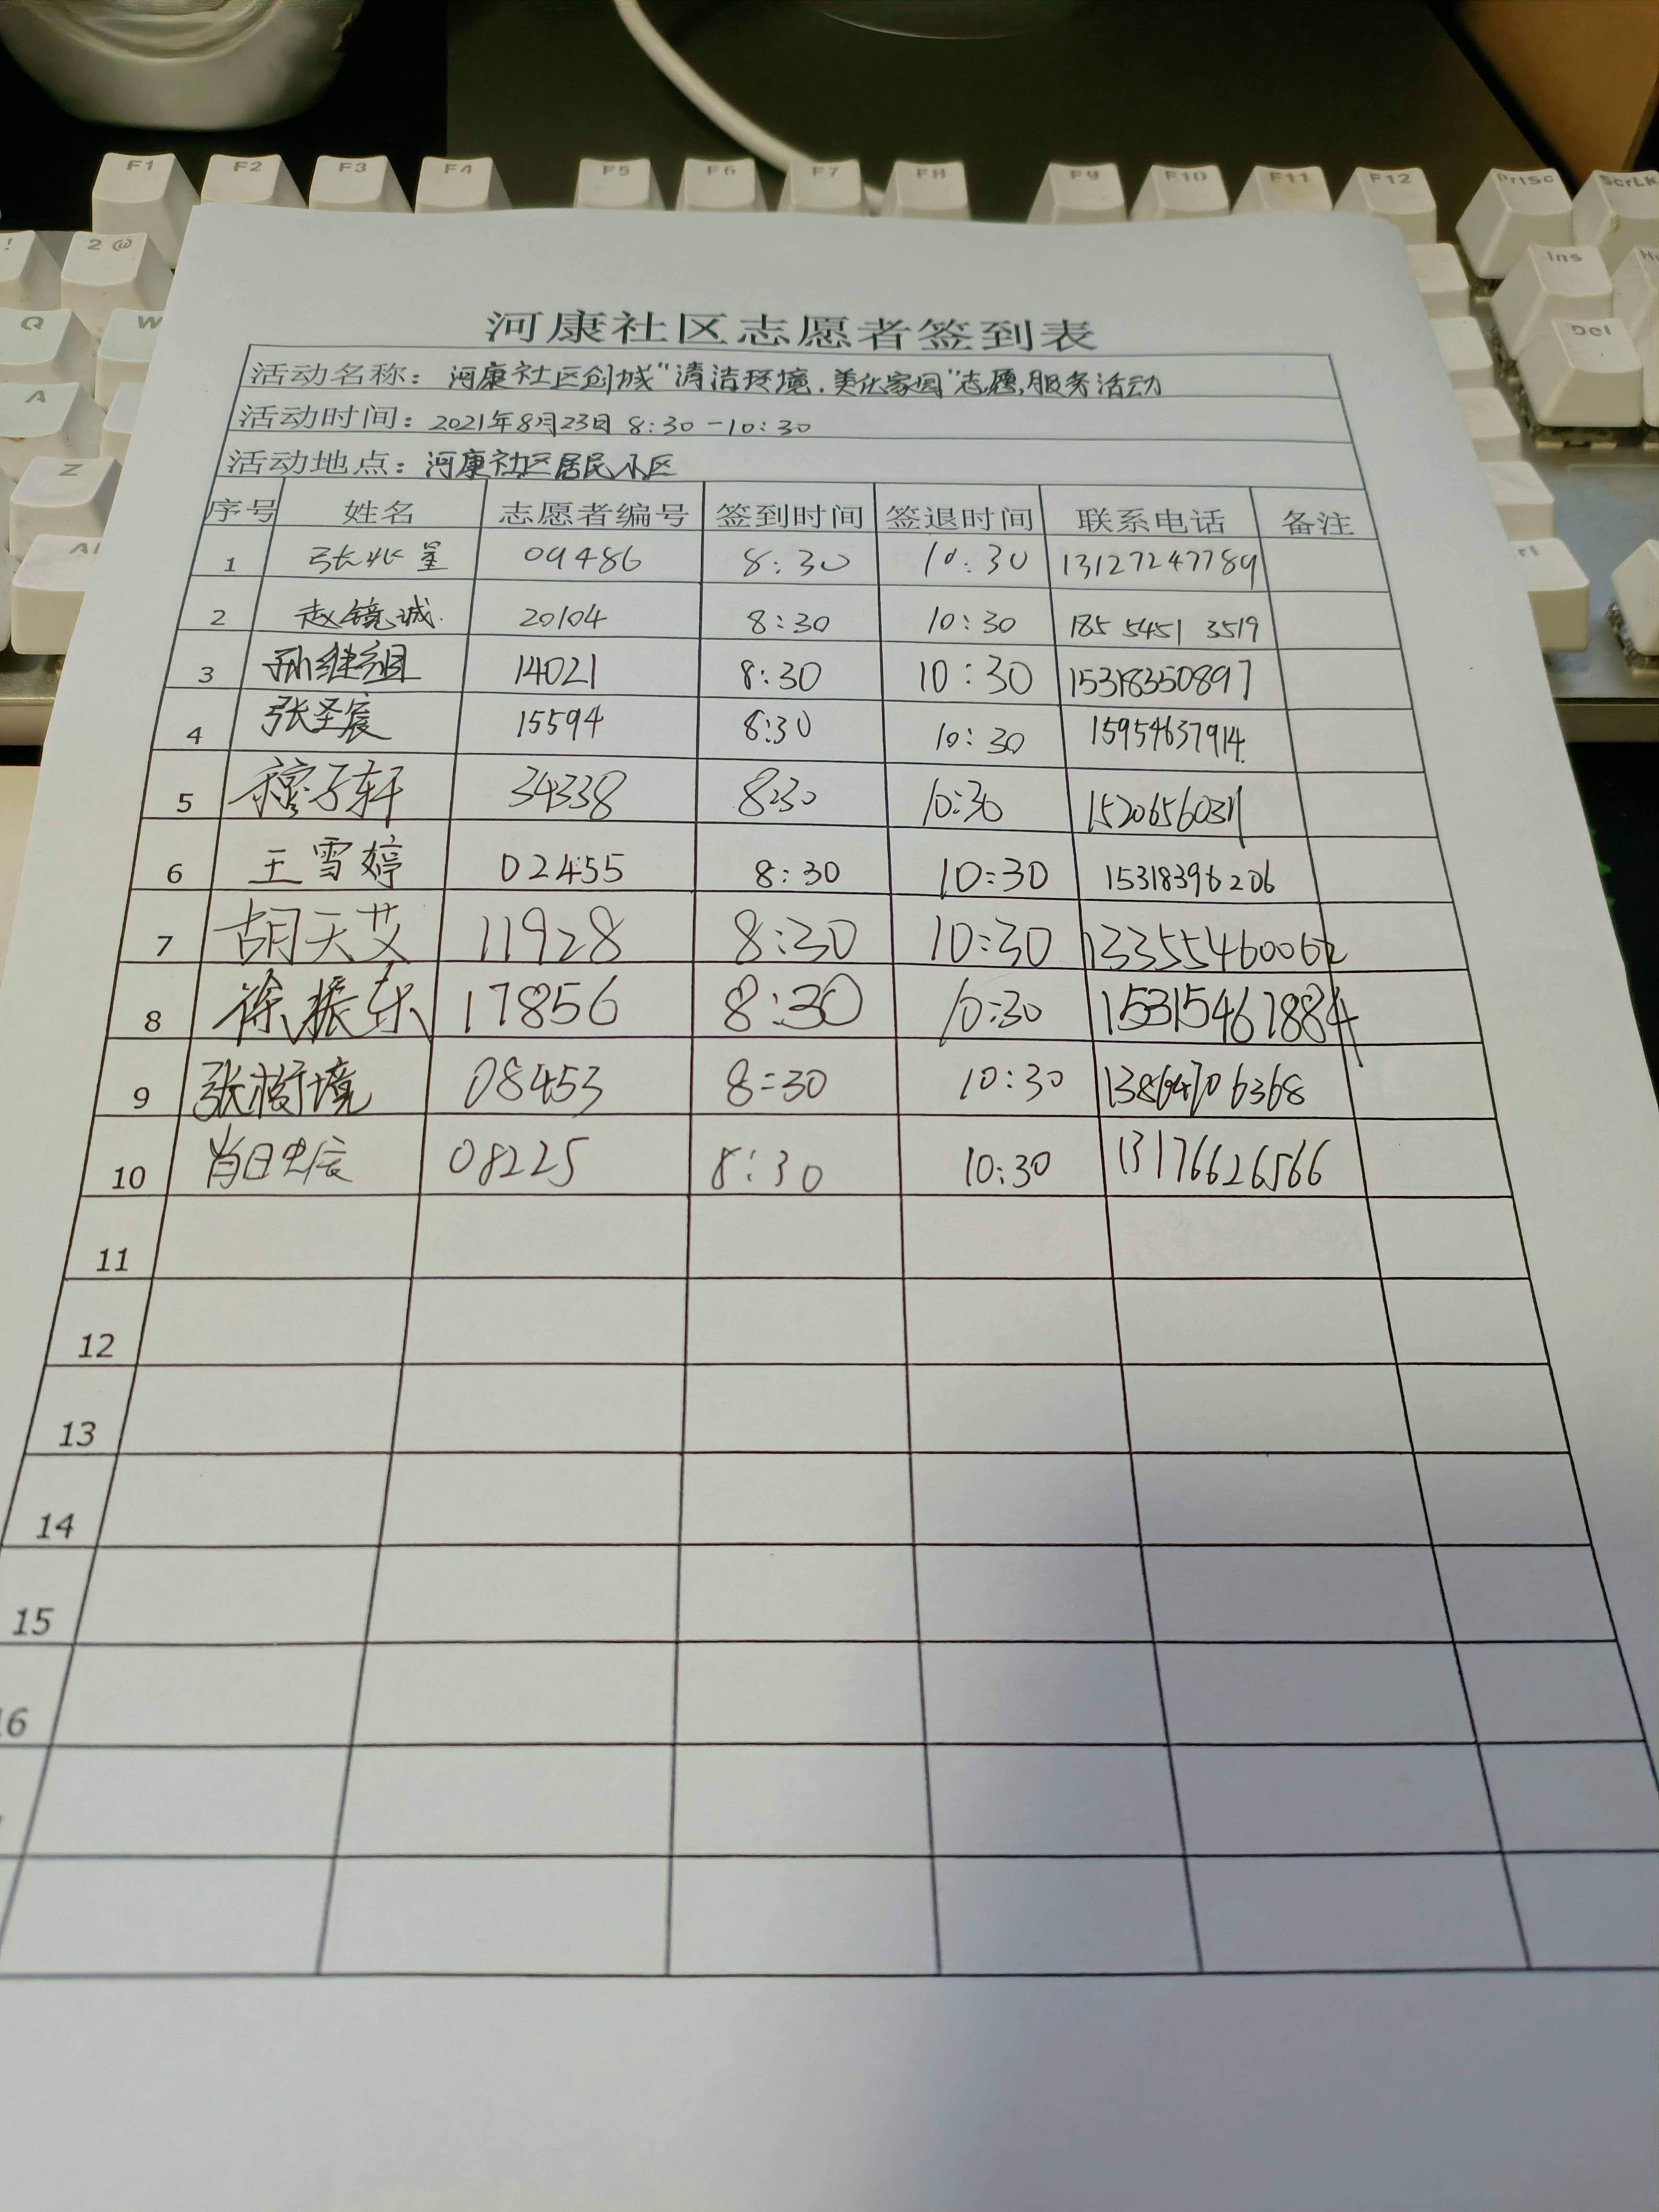 F1 F2 F3 F4 F5 F6 F7 F8 F9 F10 F11 F12 PrtSc ScrLK
! 2 @ Ins
Q W Del
A
Z
河康社区志愿者签到表
活动名称：河康社区创城“清洁环境.美化家园”志愿服务活动
活动时间：2021年8月23日 8:30-10:30
活动地点：河康社区居民小区
序号 姓名 志愿者编号 签到时间 签退时间 联系电话 备注
1 张兆星 09486 8:30 10:30 13127247789
2 赵镜诚 20104 8:30 10:30 185 5451 3519
3 孙继祖 14021 8:30 10:30 15318350897
4 张圣宸 15594 8:30 10:30 15954637914
5 子轩 34338 8:30 10:30
6 王雪婷 02455 8:30 10:30 15318396206
7 胡天艾 11928 8:30 10:30 13355460062
8 徐振东 17856 8:30 10:30 15315467884
9 张树境 08453 8:30 10:30
10 08225 8:30 10:30 13176626566
11
12
13
14
15
16